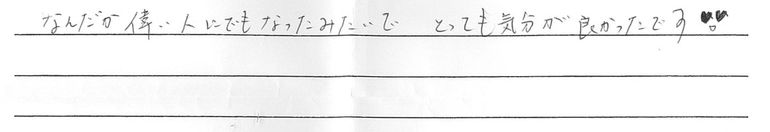 なんだか偉い人にでもなったみたいで とっても気分が良かったです